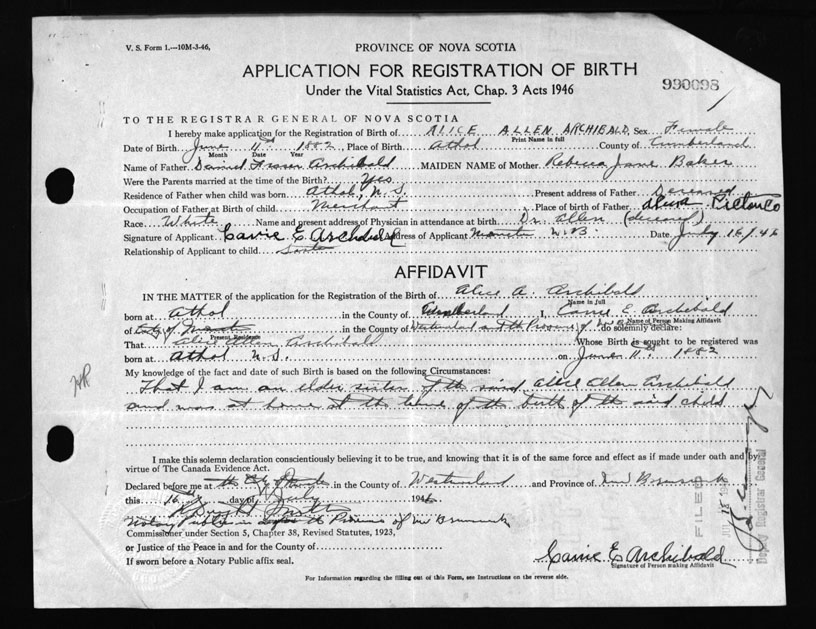 V. S. Form 1.---10M-3-46,
PROVINCE OF NOVA SCOTIA
APPLICATION FOR REGISTRATION OF BIRTH
Under the Vital Statistics Act, Chap. 3 Acts 1946
990098
TO THE REGISTRAR GENERAL OF NOVA SCOTIA
I hereby make application for the Registration of Birth of ALICE ALLEN ARCHIBALD Sex Female
Print Name in full
Date of Birth June 11th 1882, Place of Birth Athol County of Cumberland
Month Date Year
Name of Father Daniel Fraser Archibald MAIDEN NAME of Mother Rebecca Jane Baker
Were the Parents married at the time of the Birth? Yes
Residence of Father when child was born Athol, N.S. Present address of Father Deceased
Occupation of Father at Birth of child Merchant Place of birth of Father Pictou Co
Race White Name and present address of Physician in attendance at birth Dr. Allen (deceased)
Signature of Applicant Carrie E. Archibald Address of Applicant Moncton N.B. Date July 16/46
Relationship of Applicant to child Sister
AFFIDAVIT
IN THE MATTER of the application for the Registration of Birth of Alice A. Archibald
Name in full
born at Athol in the County of Cumberland I, Carrie E Archibald
Name of Person Making Affidavit
of City of Moncton in the County of Westmorland and the Province of do solemnly declare:
Present Residence
That Alice Allen Archibald Whose Birth is sought to be registered was
born at Athol N.S. on June 11th 1882
My knowledge of the fact and date of such Birth is based on the following Circumstances:
That I am an elder sister of the said Alice Allen Archibald
and was at home at the time of the birth of the said child
I make this solemn declaration conscientiously believing it to be true, and knowing that it is of the same force and effect as if made under oath and by
virtue of The Canada Evidence Act.
Declared before me at the City of Moncton in the County of Westmorland and Province of New Brunswick
this 16th day of July 1946
Notary Public in and for the Province of New Brunswick
Commissioner under Section 5, Chapter 38, Revised Statutes, 1923,
or Justice of the Peace in and for the County of
If sworn before a Notary Public affix seal.
Carrie E Archibald
Signature of Person making Affidavit
For Information regarding the filling out of this Form, see Instructions on the reverse side.
FILED
Deputy Registrar General